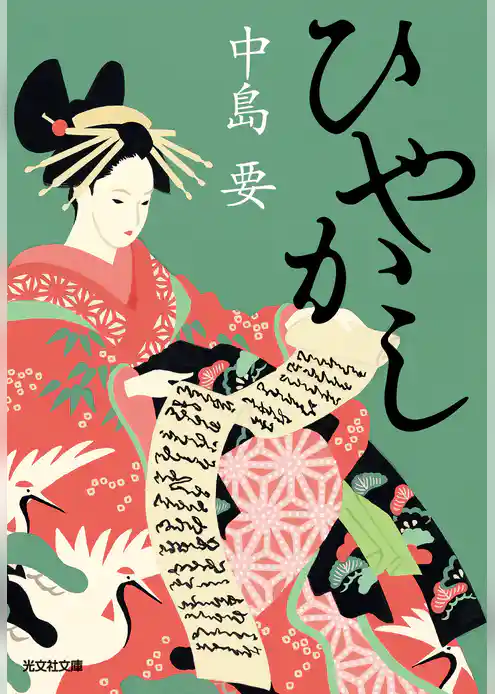 ひやかし
中島 要
光文社文庫